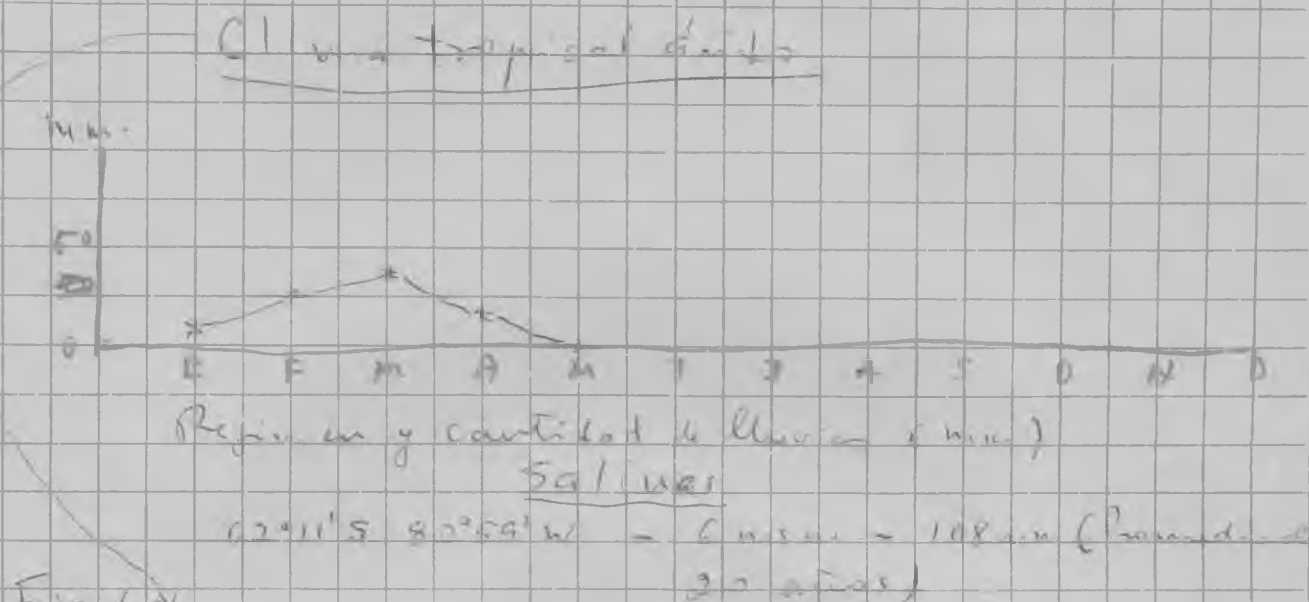 Clima tropical árido
m.m.
50
0
E F M A M J J A S O N D
Régimen y cantidad de lluvias (m.m.)
Salinas
02°11'S 80°59'W - 6 m.s.n. - 108 mm (Promedio
años)